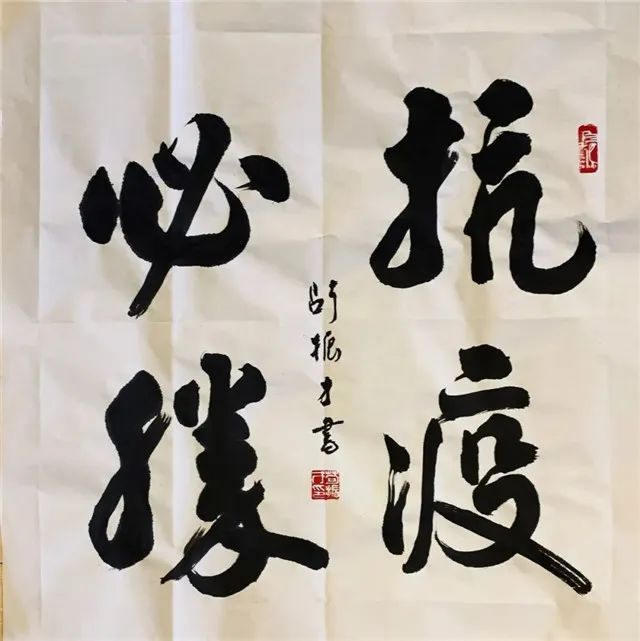 抗疫
必勝
振才書